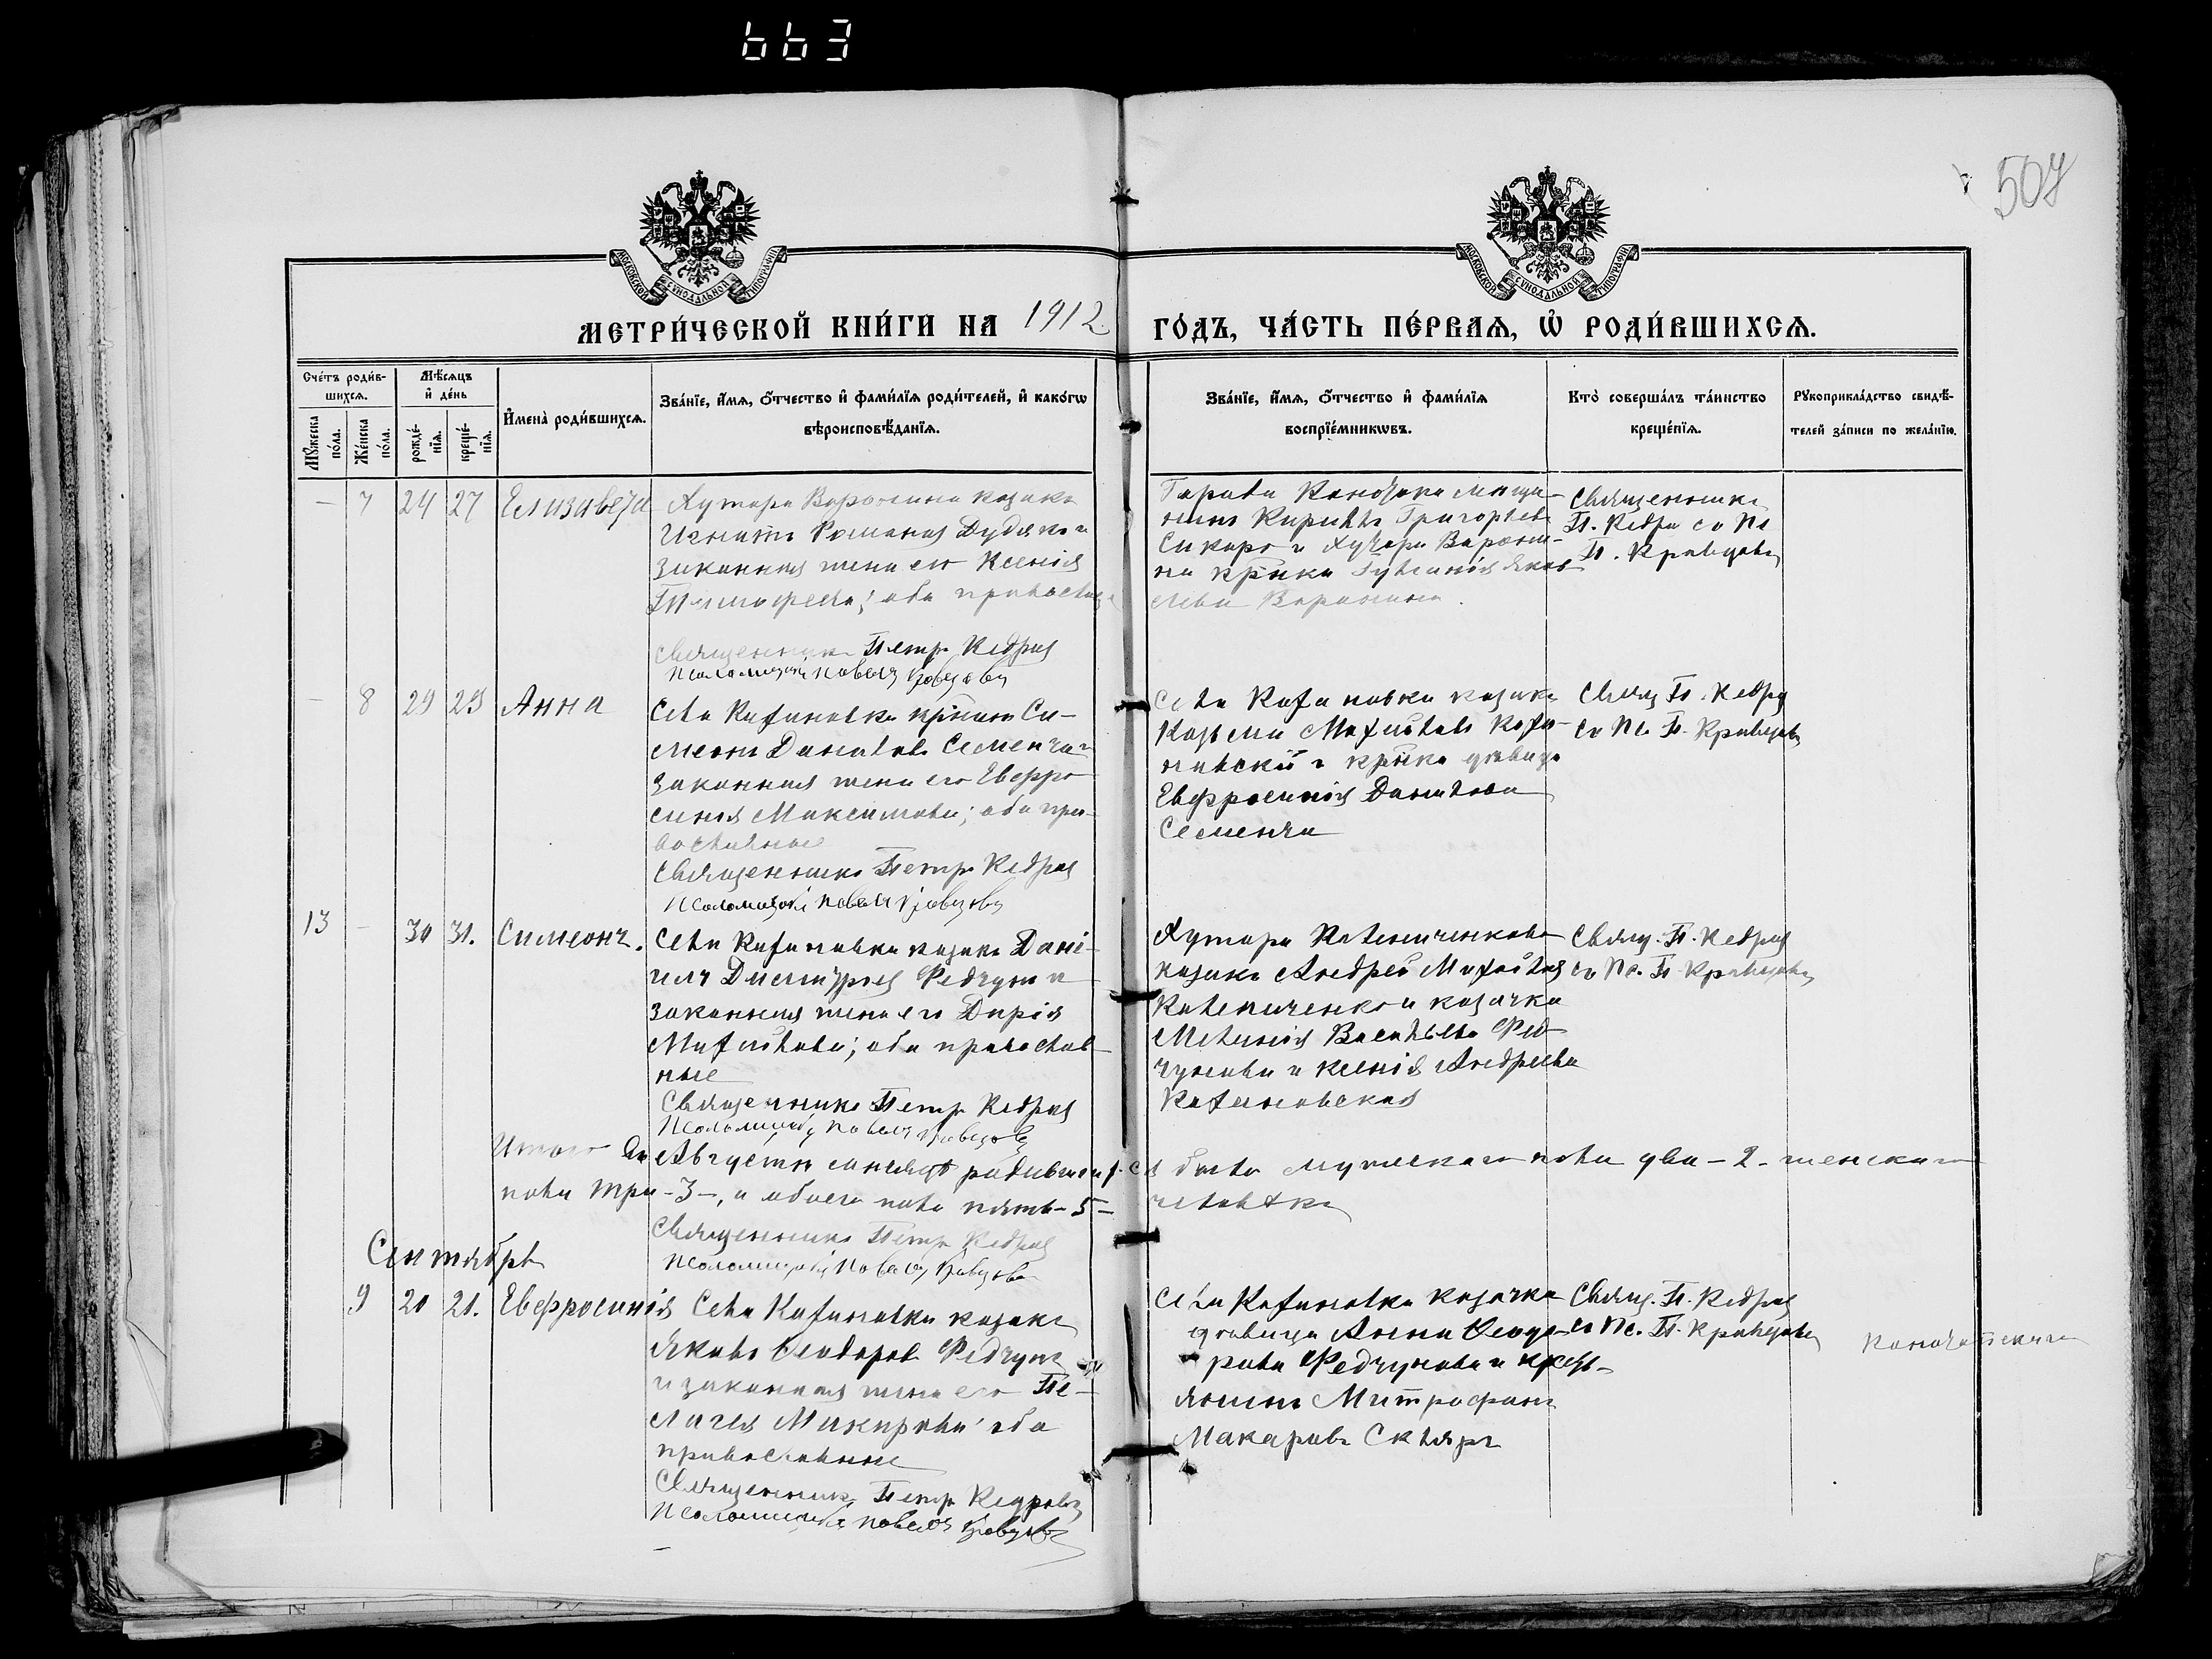 663
507
МОСКОВСКОЙ СѴНОДАЛЬНОЙ ТИПОГРАФІИ
МОСКОВСКОЙ СѴНОДАЛЬНОЙ ТИПОГРАФІИ
МЕТРИ́ЧЕСКОЙ КНИ́ГИ НА 1912. ГО́ДЪ, ЧА́СТЬ ПЕ́РВАѦ, Ѡ҆ РОДИ́ВШИХСѦ.
Сче́тъ роди́в-
шихсѧ.
Мꙋ́жеска по́ла.
Же́нска по́ла.
Мѣ́сѧцъ и҆ де́нь
рожде́-нїѧ.
креще́-нїѧ.
И҆мена̀ роди́вшихсѧ.
Зва́нїе, и҆́мѧ, ѻ҆́тчество и҆ фами́лїѧ роди́телей, и҆ како́гѡ
вѣроисповѣ́данїѧ.
Зва́нїе, и҆́мѧ, ѻ҆́тчество и҆ фами́лїѧ
воспрїе́мникѡвъ.
Кто̀ соверша́лъ та́инство
креще́нїѧ.
Рꙋкоприкла́дство свидѣ́-
телей за́писи по жела́нїю.
— 7 24 27 Елизавета
Хутора Воронина казакъ
Игнатъ Романовъ Дудко и
законная жена его Ксенія
Тимофеева; оба православные
Священникъ Петръ Кедровъ
Псаломщикъ Павелъ Кравцовъ
Города Конотопа мѣща-
нинъ Кириллъ Григорьевъ
и Хутора Ворони-
на Яков
лева Воронина.
Священникъ
П. Кедровъ съ Пс.
П. Кравцовымъ
— 8 29 29 Анна
Села Кафановки крнинъ Си-
меонъ Даниловъ Семенча и
законная жена его Евфро
синія Максимова; оба пра-
вославные
Священникъ Петръ Кедровъ
Псаломщикъ Павелъ Кравцовъ
Села казакъ
Козьма Михайловъ
и крнка дѣвица
Евфросинія Данилова
Семенча
Свящ. П. Кедровъ
съ Пс. П. Кравцовымъ
13 — 30 31. Симеонъ.
Села казакъ Дані-
илъ Димитріевъ Федчунъ и
законная жена его Дарія
Михайлова; оба православ-
ные
Священникъ Петръ Кедровъ
Псаломщикъ Павелъ Кравцовъ
Хутора
казакъ Андрей Михайловъ
и казачка
Меланія Васильева Фед-
чунова и Ксенія Андреева
Свящ. П. Кедровъ
съ Пс. П. Кравцовымъ
Итого въ Августѣ мѣсяцѣ родившихся было мужескаго пола два — 2 — женскаго
пола три — 3 —, а обоего пола пять — 5 — человѣкъ
Священникъ Петръ Кедровъ
Псаломщикъ Павелъ Кравцовъ
Сентябрь
9 20 21. Евфросинія
Села казакъ
Яковъ Феодоровъ Федчунъ
и законная жена его Пе-
лагея Макарова оба
православные
Священникъ Петръ Кедровъ
Псаломщикъ Павелъ Кравцовъ
Села казачка
дѣвица Анна Феодо-
рова Федчунова и крест-
янинъ Митрофанъ
Макаровъ Скляръ
Свящ. П. Кедровъ
съ Пс. П. Кравцовымъ